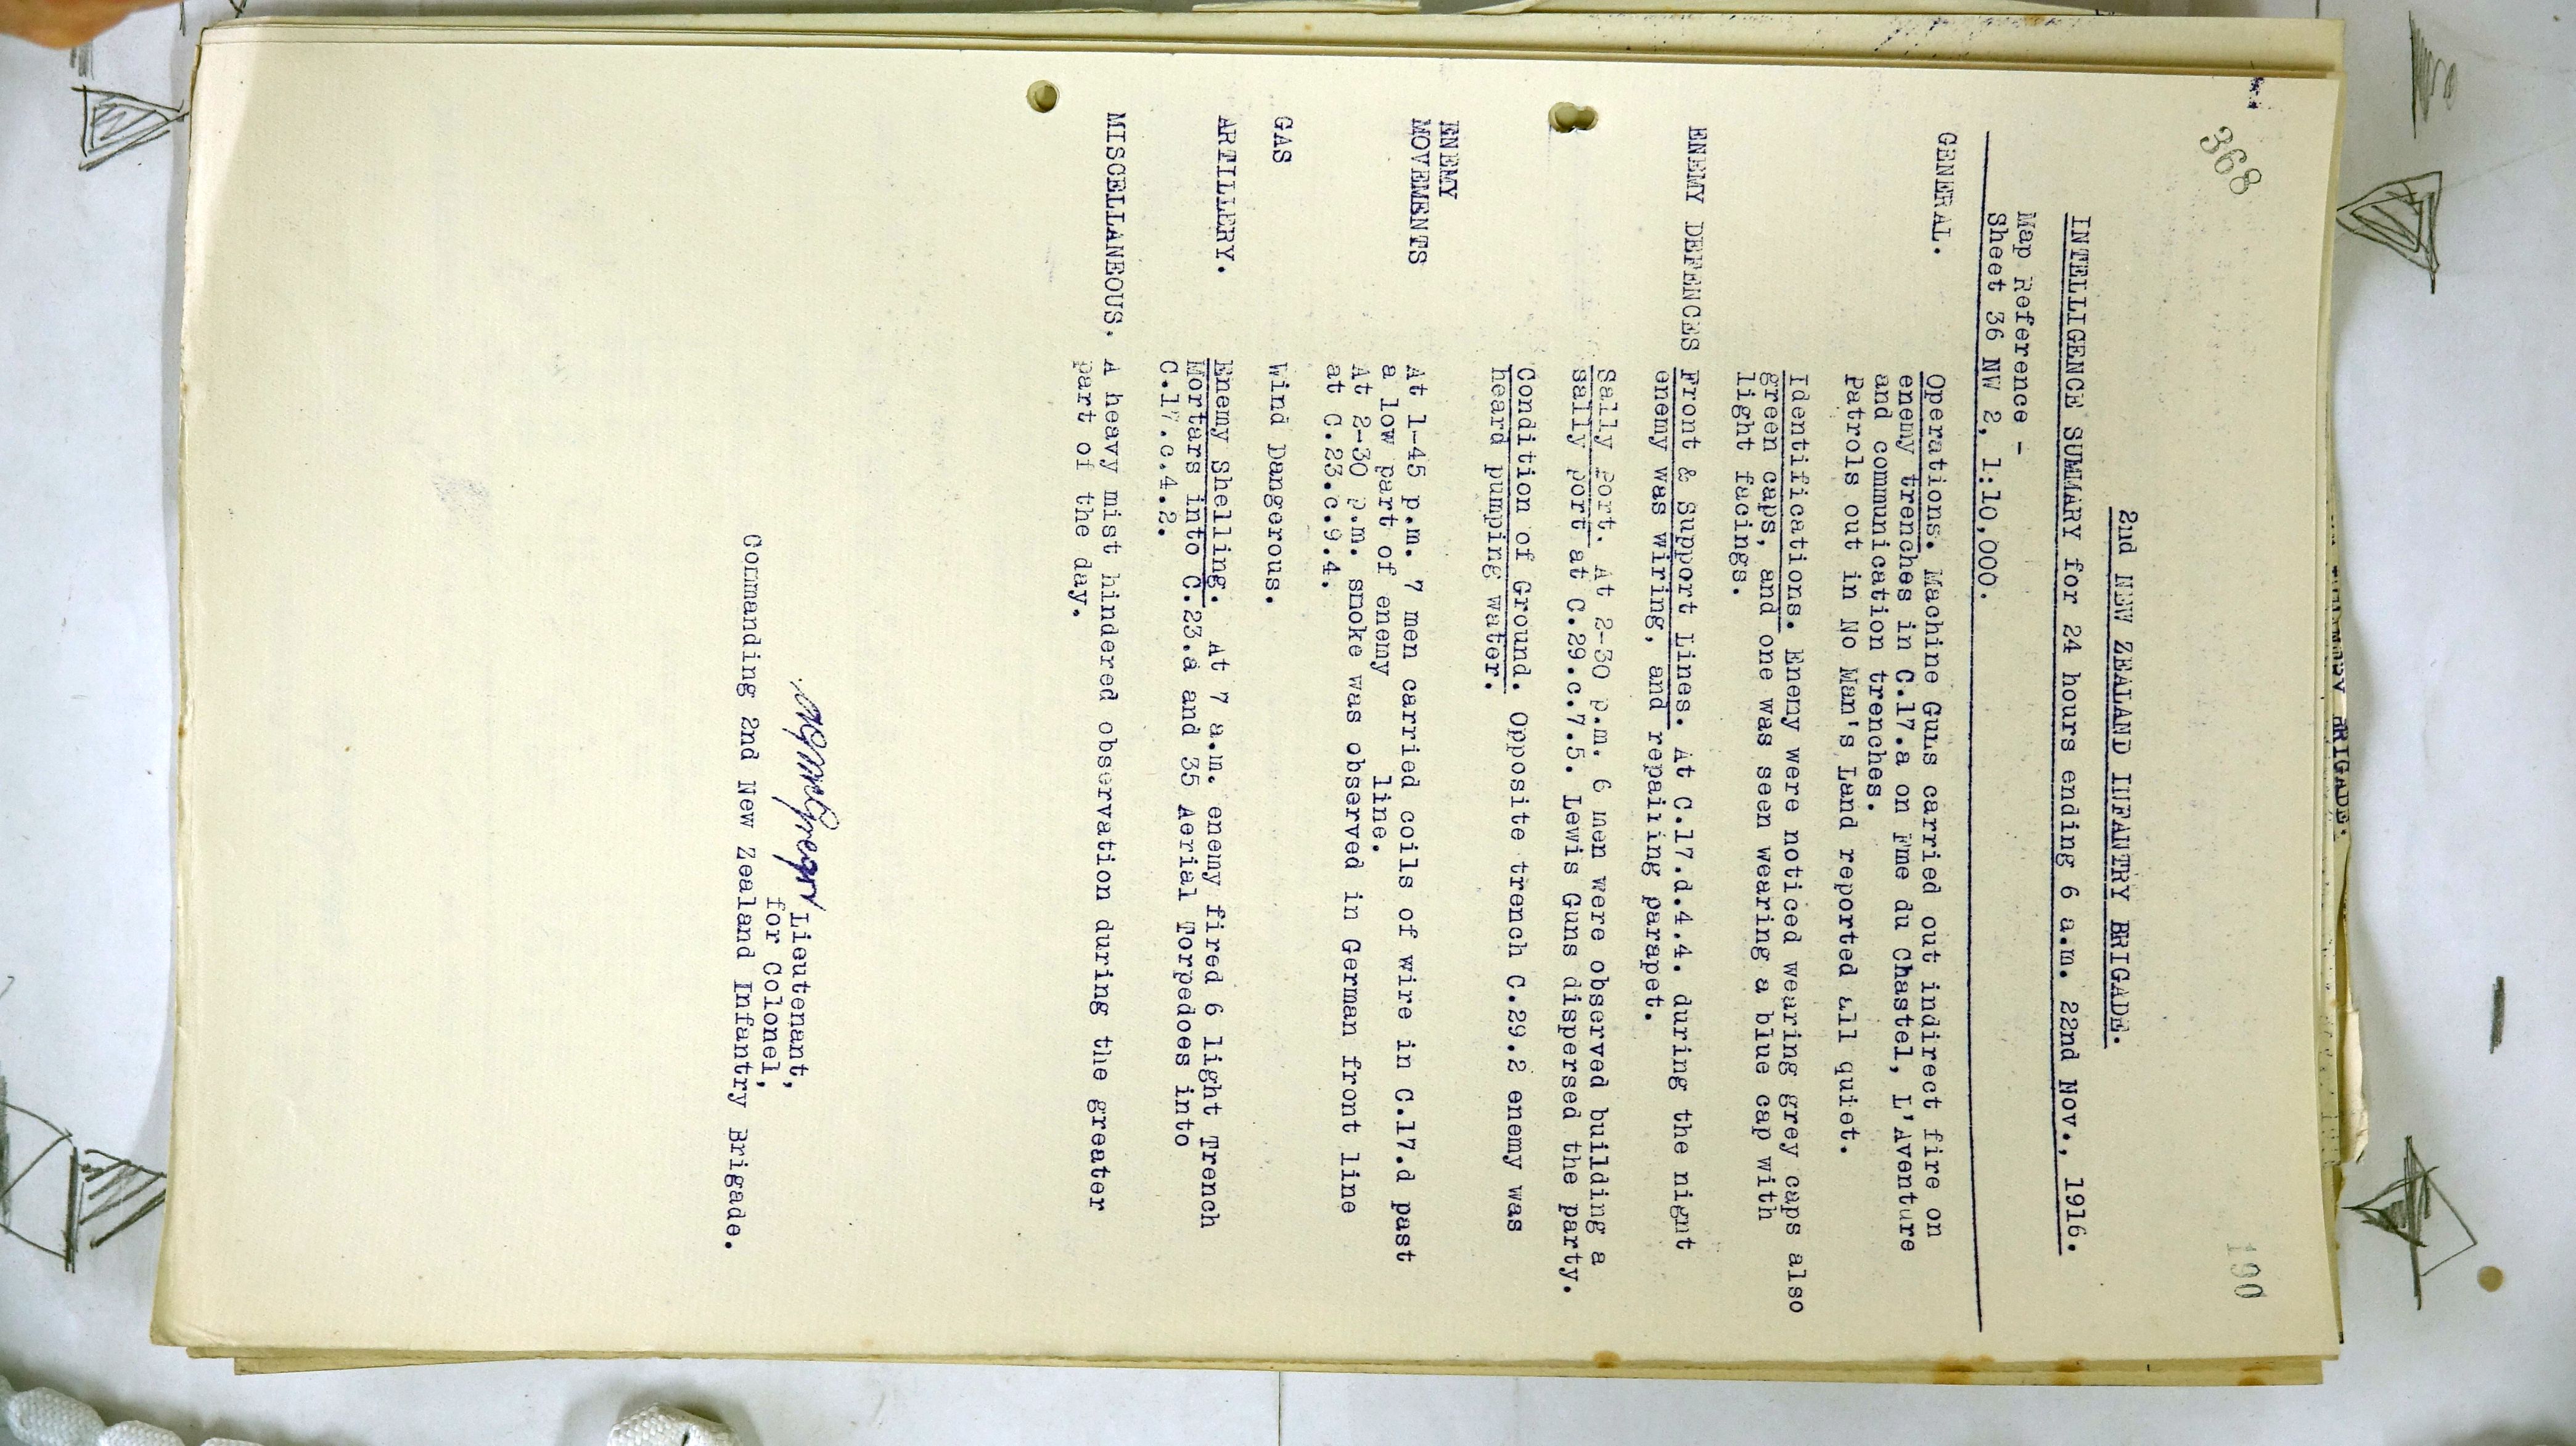 368
190
2nd NEW ZEALAND INFANTRY BRIGADE.
INTELLIGENCE SUMMARY for 24 hours ending 6 a.m. 22nd Nov., 1916.
Map Reference -
Sheet 36 NW 2, 1:10,000.
GENERAL. Operations. Machine Guns carried out indirect fire on
enemy trenches in C.17.a on Fme du Chastel, L'Aventure
and communication trenches.
Patrols out in No Man's Land reported all quiet.
Identifications. Enemy were noticed wearing grey caps also
green caps, and one was seen wearing a blue cap with
light facings.
ENEMY DEFENCES Front & Support Lines. At C.17.d.4.4. during the night
enemy was wiring, and repairing parapet.
Sally Port. At 2-30 p.m. 6 men were observed building a
sally port at C.29.c.7.5. Lewis Guns dispersed the party.
Condition of Ground. Opposite trench C.29.2 enemy was
heard pumping water.
ENEMY
MOVEMENTS At 1-45 p.m. 7 men carried coils of wire in C.17.d past
a low part of enemy line.
At 2-30 p.m. smoke was observed in German front line
at C.23.c.9.4.
GAS Wind Dangerous.
ARTILLERY. Enemy Shelling. At 7 a.m. enemy fired 6 light Trench
Mortars into C.23.a and 35 Aerial Torpedoes into
C.17.c.4.2.
MISCELLANEOUS. A heavy mist hindered observation during the greater
part of the day.
Lieutenant,
for Colonel,
Commanding 2nd New Zealand Infantry Brigade.
BRIGADE.